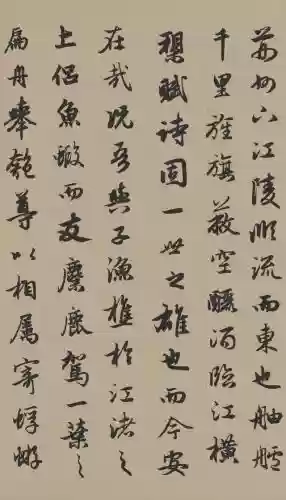 荊州下江陵順流而東也舳艫
千里旌旗蔽空釃酒臨江橫
槊賦詩固一世之雄也而今安
在哉況吾與子漁樵於江渚之
上侶魚蝦而友麋鹿駕一葉之
扁舟舉匏尊以相屬寄蜉蝣